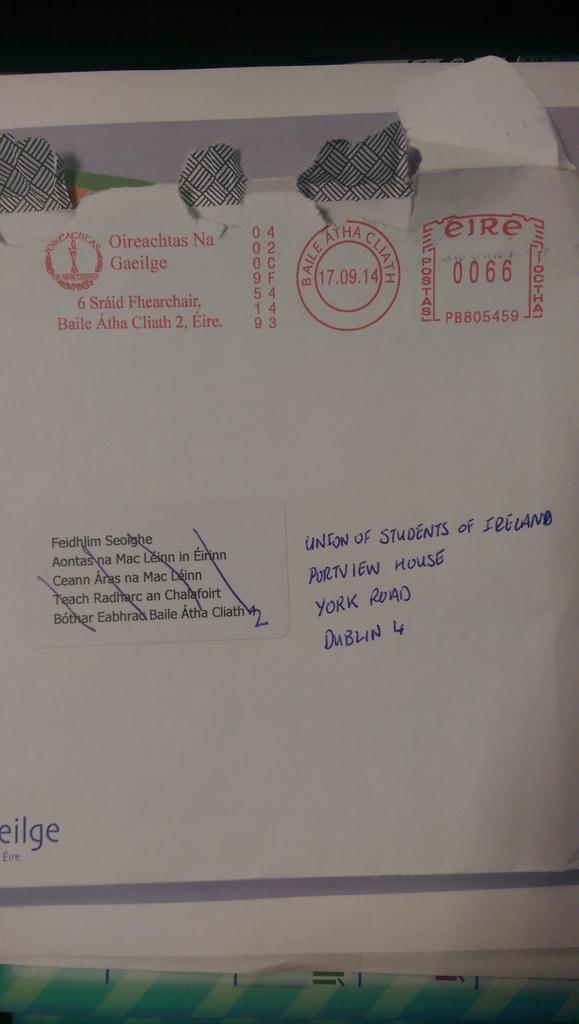 OIREACHTAS
Oireachtas Na
Gaeilge
6 Sráid Fhearchair,
Baile Átha Cliath 2, Éire.
0 4
0 2
0 C
9 F
5 4
1 4
9 3
BAILE ÁTHA CLIATH
17.09.14
éIRe
POSTAS
0066
ÍOCTHA
PB805459
Feidhlim Seoighe
Aontas na Mac Léinn in Éirinn
Ceann Áras na Mac Léinn
Teach Radharc an Chalafoirt
Bóthar Eabhrac Baile Átha Cliath
2
UNION OF STUDENTS OF IRELAND
PORTVIEW HOUSE
YORK ROAD
DUBLIN 4
eilge
Éire.